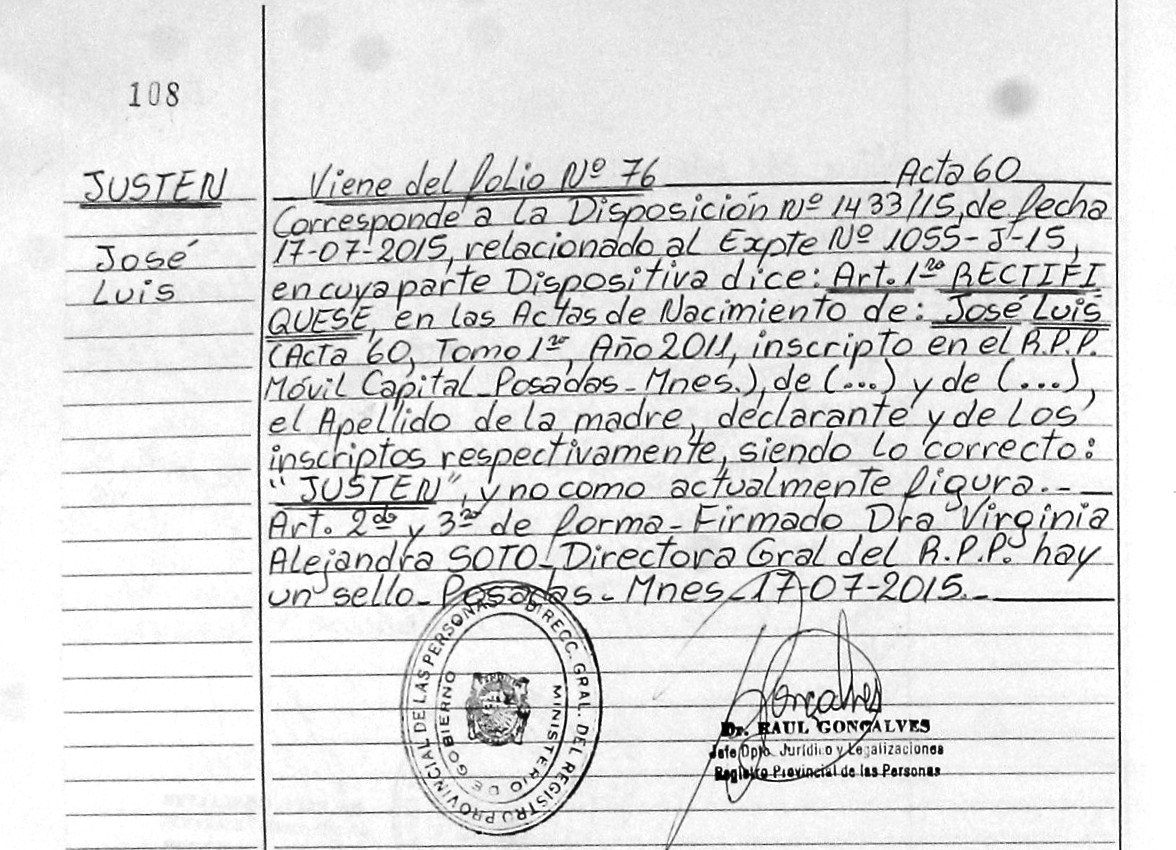 108
JUSTEN
José
Luis
Viene del folio Nº 76 Acta 60
Corresponde a la Disposición Nº 1433/15, de fecha
17-07-2015, relacionado al Expte Nº 1055-J-15,
en cuya parte Dispositiva dice: Art. 1ro RECTIFI
QUESE, en las Actas de Nacimiento de: José Luis
(Acta 60, Tomo 1ro, Año 2011, inscripto en el R.P.P.
Móvil Capital Posadas-Mnes.), de (...) y de (...),
el Apellido de la madre, declarante y de los
inscriptos respectivamente, siendo lo correcto:
"JUSTEN", y no como actualmente figura.-
Art. 2do y 3ro de forma-Firmado Dra Virginia
Alejandra SOTO-Directora Gral del R.P.P. hay
un sello-Posadas-Mnes-17-07-2015.-
DIRECC. GRAL. DEL REGISTRO PROVINCIAL DE LAS PERSONAS
MINISTERIO DE GOBIERNO
Gonçalves
Dr. RAUL GONÇALVES
Jefe Dpto. Jurídico y Legalizaciones
Registro Provincial de las Personas